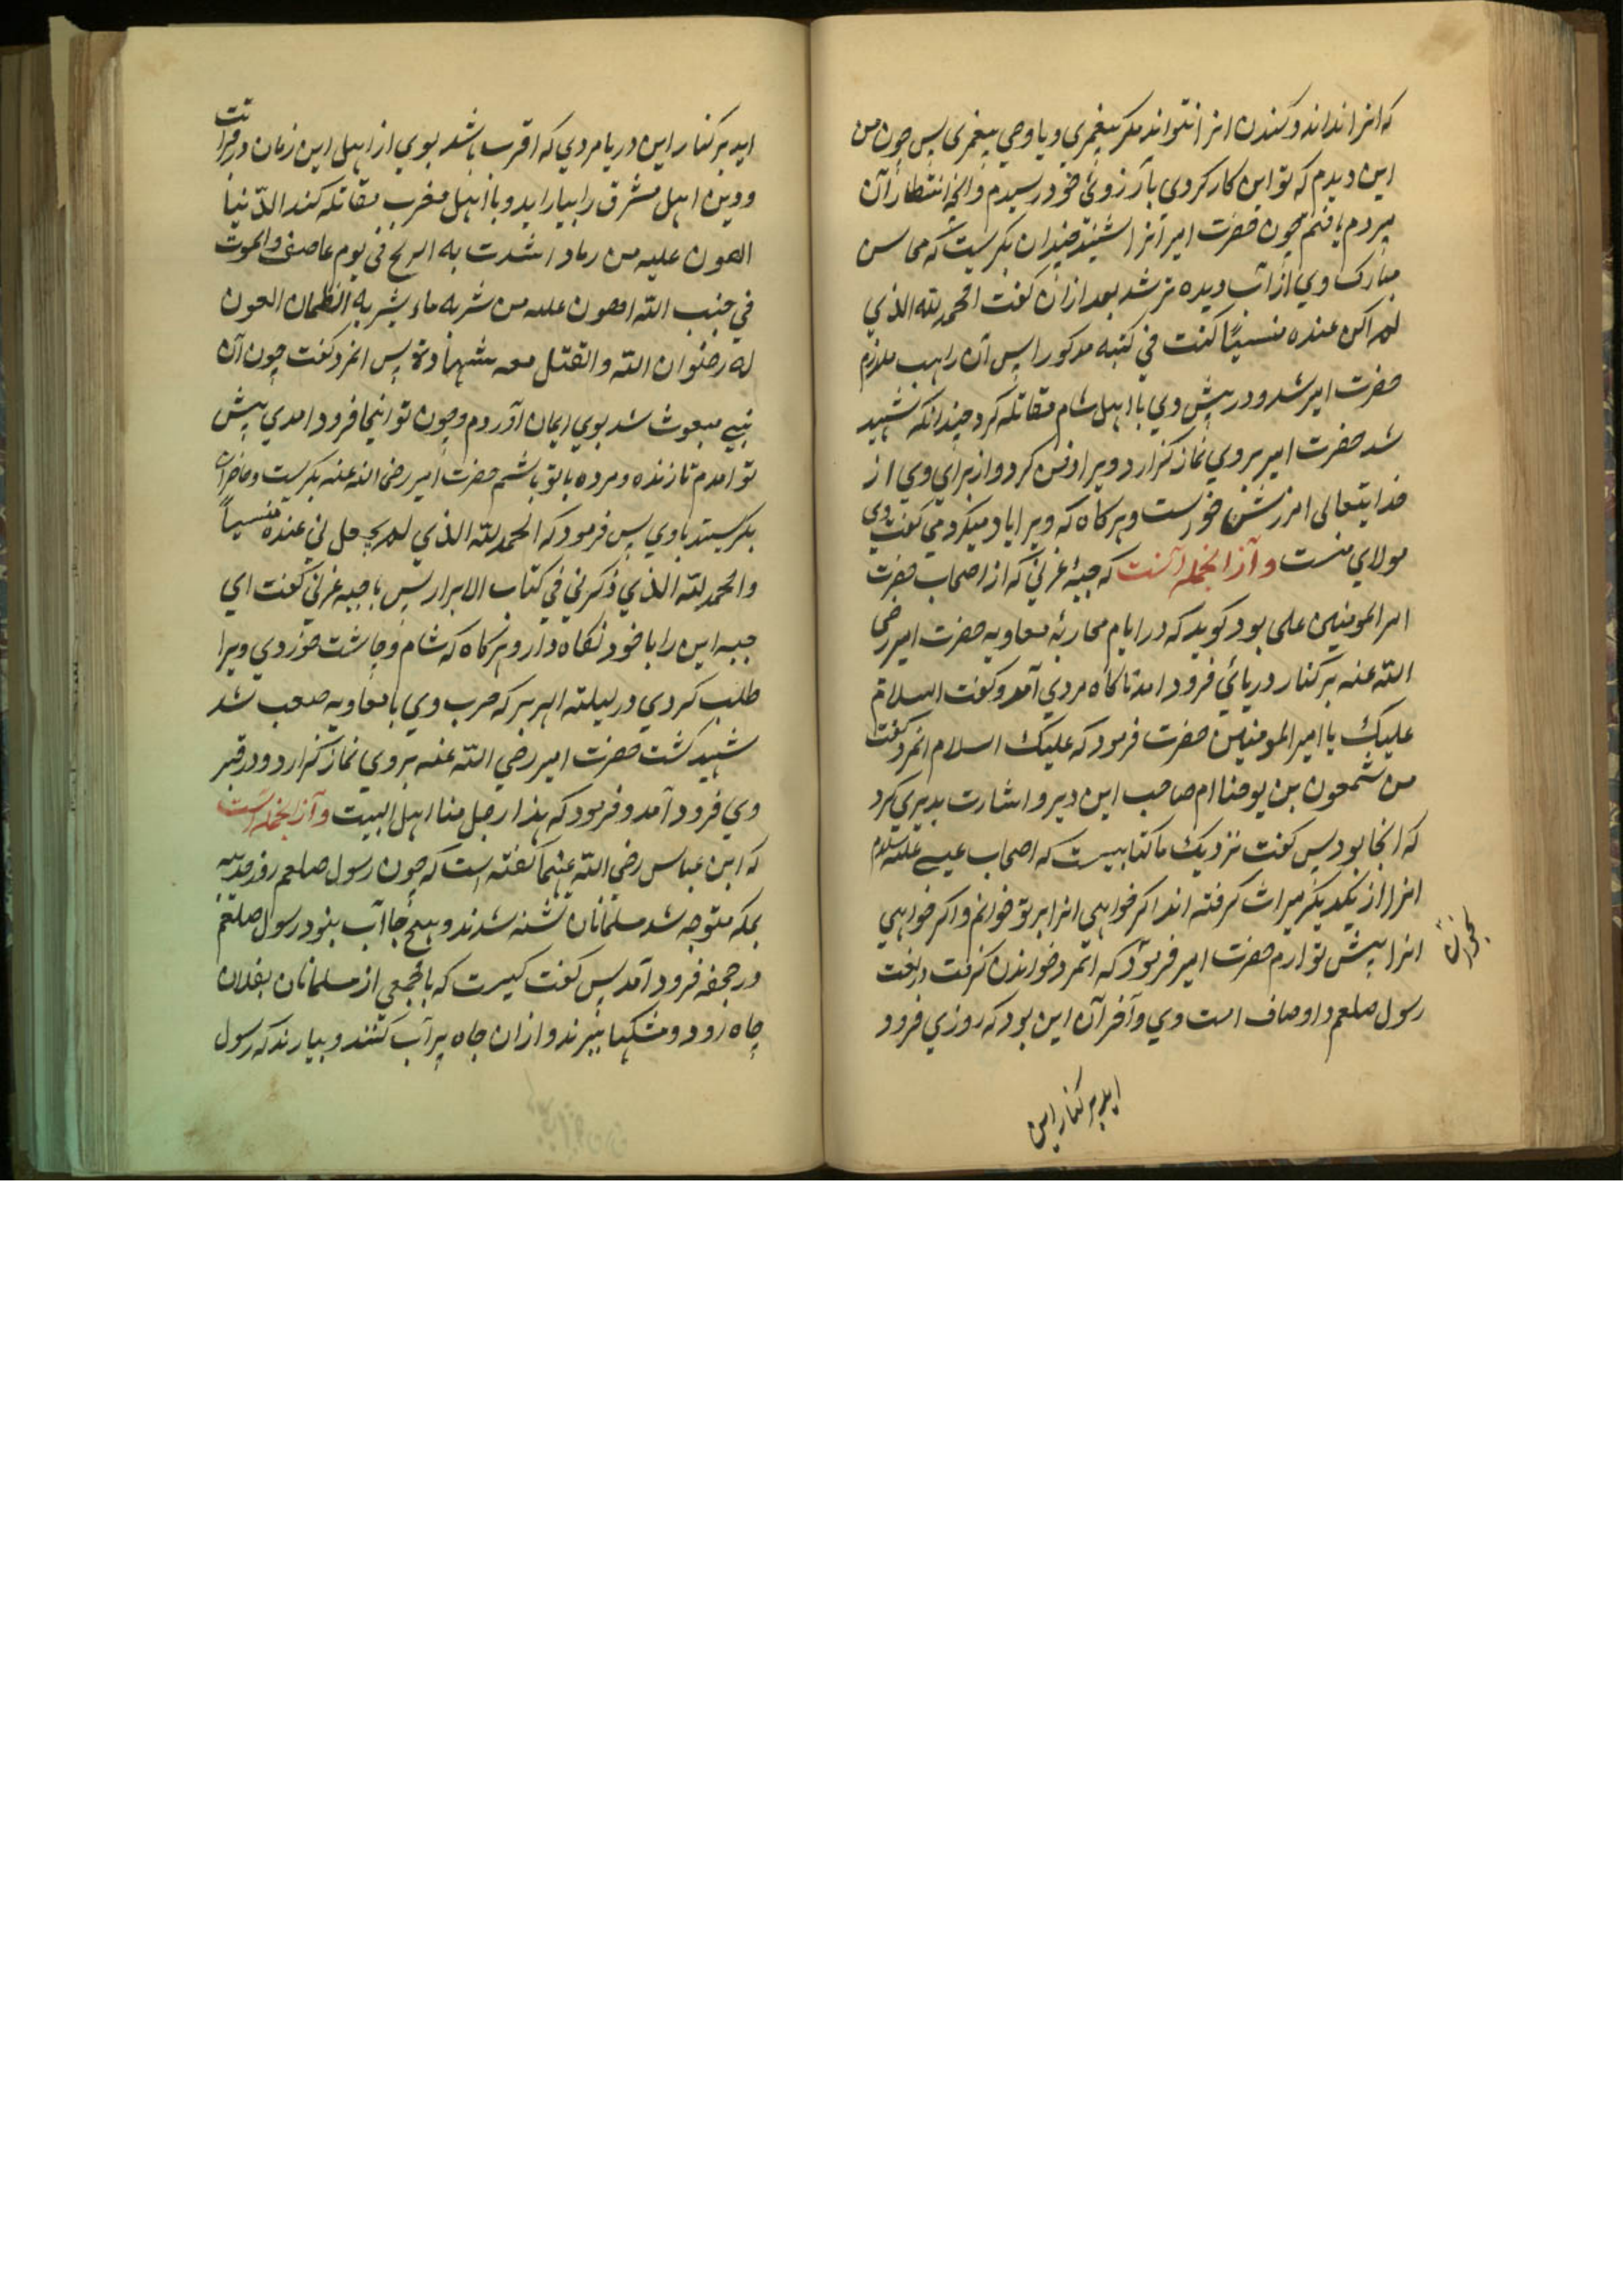 که انرا نداند و کندن انرا نتواند مکر پیغمبری و یا وصی پیغمبری پس چون من
این دیدم که تو این کار کردی بآرزوئ خود رسیدم و انچه انتظار آن
میبردم یافتم چون حضرت امیر آنرا شنید چندان بکریست که محاسن
مبارک وی از آب دیده تر شد بعد ازان کفت الحمد لله الذی
لم اکن عنده منسیًا کنت فی کتبه مذکورا پس آن راهب ملازم
حضرت امیر شد و در پیش وی با اهل شام مقاتله کرد چندانکه شهید
شد حضرت امیر بروی نماز کزارد و ویرا دفن کرد و از برای وی از
خدایتعالی امرزش خواست و هرکاه که ویرا یاد میکرد می کفت وی
مولای منست و آز انجمله آنست که حبۀ غرنی که از اصحاب حضرت
امیر المومنین علی بود کوید که در ایام محاربۀ معاویه حضرت امیر رضی
الله عنه بر کنار دریائی فرود امد ناکاه مردی آمد و کفت السلام
علیک یا امیر المومنین حضرت فرمود که علیک السلام انمرد کفت
من شمعون بن یوحنا ام صاحب این دیر و اشارت بدیری کرد
که انجا بود پس کفت نزدیک ما کتابیست که اصحاب عیسی علیه السلام
انرا از یکدیکر میراث کرفته اند اکر خواهی انرا بر تو خوانم و اکر خواهی
انرا پیش تو ارم حضرت امیر فرمود که بخوان انمرد خواندن کرفت در نعت
رسول صلعم و اوصاف امت وی و آخر آن این بود که روزی فرود
اید بر کنار این
اید بر کنار این دریا مردی که اقرب باشد بوی از اهل این زمان در قرابت
و دین اهل مشرق را بیاراید و با اهل مغرب مقاتله کند الدّنیا
اهون علیه من رماد اشدت به الریح فی یوم عاصف و الموت
فی جنب الله اهون علیه من شربه ماء یشربه الظمان العون
له رضوان الله و القتل معه شهادة پس انمرد کفت چون آن
نبی مبعوث شد بوی ایمان آوردم و چون تو اینجا فرود امدی پیش
تو امدم تا زنده و مرده با تو باشم حضرت امیر رضی الله عنه بکریست و حاضران
بکریستند با وی پس فرمود که الحمد لله الذی لم یجعلنی عنده منسیاً
و الحمد لله الذی ذکرنی فی کتاب الابرار پس با حبه غرنی کفت ای
حبه این را با خود نکاه دار و هرکاه که شام و چاشت خوردی ویرا
طلب کردی در لیلته الهریر که حرب وی با معاویه صعب شد
شهید کشت حضرت امیر رضی الله عنه بروی نماز کزارد و در قبر
وی فرود آمد و فرمود که هذا رجل منا اهل البیت و آز انجمله است
که ابن عباس رضی الله عنهما کفته است که چون رسول صلعم روز حدیبیه
بمکه متوجه شد مسلمانان تشنه شدند و هیچ جا آب نبود رسول صلعم
در جحفه فرود آمد پس کفت کیست که با جمعی از مسلمانان بفلان
چاه رود و مشکها ببرند و ازان چاه پر آب کنند و بیارند که رسول